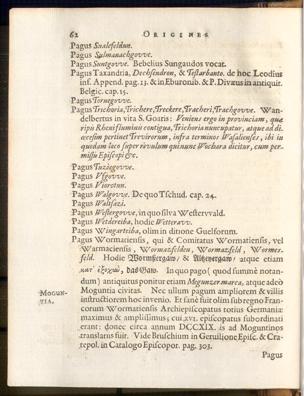 62 ORIGINES
Pagus Sualefeldun.
Pagus Sulmanachgovve.
Pagus Suntgovve. Bebelius Sungaudos vocat.
Pagus Taxandria, Dechsendron, & Testarbanto. de hoc Leodius
inf. Append. pag. 13. & in Eburonib. & P. Divæus in antiquit.
Belgic. cap. 15.
Pagus Tornegovve.
Pagus Trechoria, Trichere, Treckere, Tracheri, Trachgovve. Wan-
delbertus in vita S. Goaris: Veniens ergo in provinciam, quæ
ripis Rheni fluminis contigua, Trichoria nuncupatur, atque ad di-
œcesim pertinet Trevirorum, infra terminos Wasaliensés, ibi in
quodam loco super rivulum qui nunc Wochara dicitur, cum per-
missu Episcopi &c.
Pagus Tuziegovve.
Pagus Vfgovve.
Pagus Viorotun.
Pagus Walgovve. De quo Tschud. cap. 24.
Pagus Waltsazi.
Pagus Westergovve, in quo silva Westervvald.
Pagus Wetdereiba, hodie Wetteravv.
Pagus Wingarteiba, olim in ditione Guelforum.
Pagus Wormatiensis, qui & Comitatus Wormatiensis, vel
Warmaciensis, Wormatzfeldun, Wormatzfelt, Wormes-
feld. Hodie Wormsergaw/ & Altzenergaw/ atque etiam
κατ' ἐξοχὼ, das Gaw. In quo pago (quod summè notan-
dum) antiquitus ponitur etiam Mogunzer marca, atque adeò
MOGUN-
TIA.
Moguntia civitas. Nec ullum pagum ampliorem & villis
instructiorem hoc invenio. Et sanè fuit olim sub regno Fran-
corum Wormatiensis Archiepiscopatus totius Germaniæ
maximus & amplissimus; cui XVI. episcopatus subordinati
erant: donec circa annum DCCXIX. is ad Moguntinos
translatus fuit. Vide Bruschium in Gervilione Episc. & Cra-
tepol. in Catalogo Episcopor. pag. 303.
Pagus